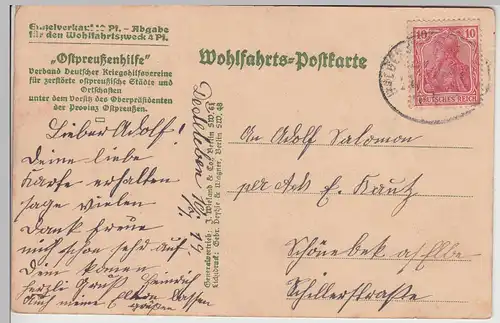 Einzelverkauf 10 Pf. - Abgabe
für den Wohlfahrtszweck 4 Pf.
„Ostpreußenhilfe"
Verband Deutscher Kriegshilfsvereine
für zerstörte ostpreußische Städte und
Ortschaften
unter dem Vorsitz des Oberpräsidenten
der Provinz Ostpreußen.
Wohlfahrts-Postkarte
10 10
DEUTSCHES REICH
Lieber Adolf!
Deine liebe
Karte erhalten
sage vielen
Dank freue
mich schon sehr auf
Dein komen
herzl Gruß Heinrich
auch meine Eltern lassen
grüßen
Generalvertrieb: J. Wieland & Co., Berlin SW. 48
Lichtdruck: Gebr. Deyhle & Wagner, Berlin SW. 48
An Adolf Salomon
per Adr E. Kautz
Schönebek a/Elbe
Schillerstraße